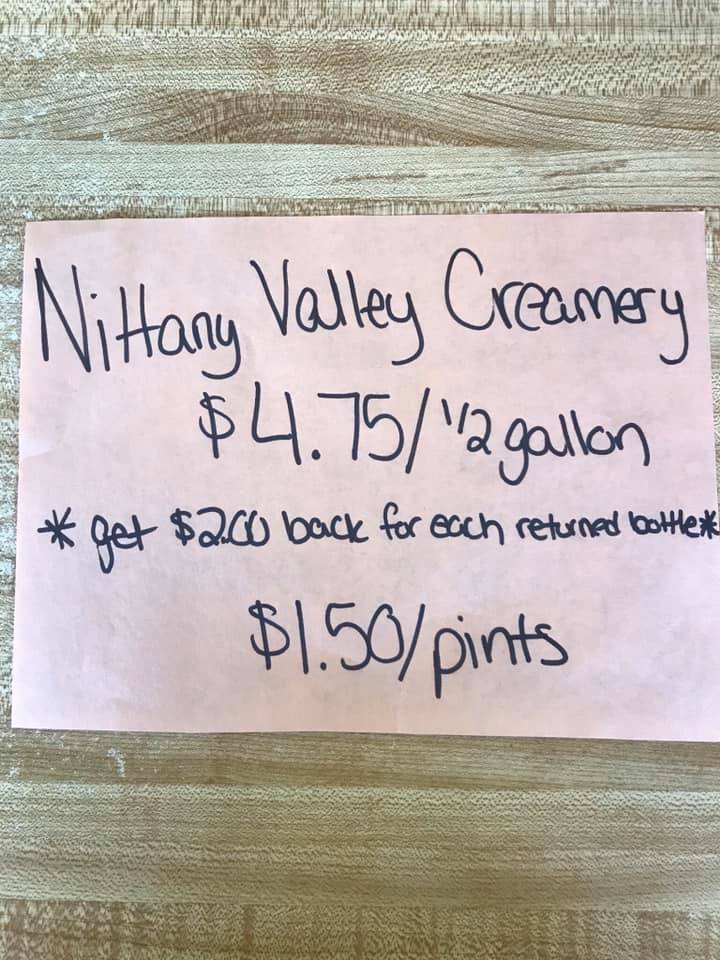 Nittany Valley Creamery
$4.75/ 1/2 gallon
* get $2.00 back for each returned bottle*
$1.50/pints